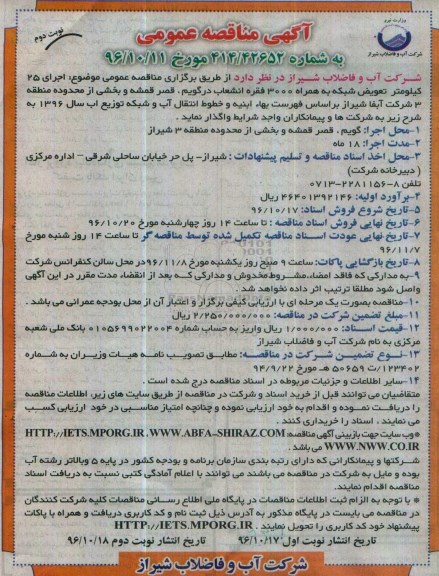 وزارت نیرو
شرکت آب و فاضلاب شیراز
نوبت دوم
آگهی مناقصه عمومی
به شماره ۴۱۴/۴۲۶۵۲ مورخ ۹۶/۱۰/۱۱
شرکت آب و فاضلاب شیراز در نظر دارد از طریق برگزاری مناقصه عمومی موضوع: اجرای ۲۵
کیلومتر تعویض شبکه به همراه ۳۰۰۰ فقره انشعاب درگویم، قصر قمشه و بخشی از محدوده منطقه
۳ شرکت آبفا شیراز براساس فهرست بهاء ابنیه و خطوط انتقال آب و شبکه توزیع اب سال ۱۳۹۶ به
شرح زیر به شرکت ها و پیمانکاران واجد شرایط واگذار نماید .
۱-محل اجرا: گویم ، قصر قمشه و بخشی از محدوده منطقه ۳ شیراز
۲-مدت اجرا: ۱۸ ماه
۳-محل اخذ اسناد مناقصه و تسلیم پیشنهادات : شیراز- پل حر خیابان ساحلی شرقی – اداره مرکزی
( دبیرخانه شرکت)
تلفن ۸-۲۲۸۱۱۵۶-۰۷۱۳
۴-برآورد اولیه: ۴۶۴۰۱۳۹۲۱۴۶ ریال
۵-تاریخ شروع فروش اسناد: ۹۶/۱۰/۱۷
۶-تاریخ نهایی فروش اسناد مناقصه : تا ساعت ۱۴ روز چهارشنبه مورخ ۹۶/۱۰/۲۰
۷-تاریخ نهایی عودت اسناد مناقصه تکمیل شده توسط مناقصه گر تا ساعت ۱۴ روز شنبه مورخ
۹۶/۱۱/۷
۸-تاریخ بازگشایی پاکات: ساعت ۹ صبح روز یکشنبه مورخ ۹۶/۱۱/۸ در محل سالن کنفرانس شرکت
۹-به مدارکی که فاقد امضاء،مشروط،مخدوش و مدارکی که بعد از انقضاء مدت مقرر در این آگهی
واصل شود مطلقا ترتیب اثر داده نخواهد شد .
۱۰-مناقصه بصورت یک مرحله ای با ارزیابی کیفی برگزار و اعتبار آن از محل بودجه عمرانی می باشد .
۱۱-مبلغ تضمین شرکت در مناقصه: ۲/۲۵۰/۰۰۰/۰۰۰ ریال
۱۲-قیمت اسناد: ۱/۰۰۰/۰۰۰ ریال واریز به حساب شماره ۰۱۰۵۶۹۹۰۲۲۰۰۴ بانک ملی شعبه
مرکزی به نام شرکت آب و فاضلاب شیراز
۱۳-نوع تضمین شرکت در مناقصه: مطابق تصویب نامه هیات وزیران به شماره
۱۲۳۴۰۲/ت ۵۰۶۵۹ هـ مورخ ۹۴/۹/۲۲
۱۴-سایر اطلاعات و جزئیات مربوطه در اسناد مناقصه درج شده است .
متقاضیان می توانند قبل از خرید اسناد و شرکت در مناقصه از طریق سایت های زیر، اطلاعات مناقصه
را دریافت نموده و اقدام به خود ارزیابی نموده و چنانچه امتیاز مناسبی در خود ارزیابی کسب
می نمایند ، اسناد را خریداری کنند .
*وب سایت جهت بازبینی آگهی مناقصه: HTTP://IETS.MPORG.IR ، WWW.ABFA-SHIRAZ.COM
WWW.NWW.CO.IR می باشد .
شرکتها و پیمانکارانی که دارای رتبه بندی سازمان برنامه و بودجه کشور در پایه ۵ وبالاتر رشته آب
بوده و مایل به شرکت در مناقصه می باشند می توانند با اعلام آمادگی کتبی نسبت به دریافت اسناد
مناقصه اقدام نمایند.
* با توجه به الزام ثبت اطلاعات مناقصات در پایگاه ملی اطلاع رسانی مناقصات کلیه شرکت کنندگان
در مناقصه می بایست در پایگاه مذکور به آدرس ذیل ثبت نام و کد کاربری دریافت و همراه با پاکات
پیشنهاد خود کد کاربری را تحویل نمایند . HTTP://IETS.MPORG.IR
تاریخ انتشار نوبت اول ۹۶/۱۰/۱۷ تاریخ انتشار نوبت دوم ۹۶/۱۰/۱۸
شرکت آب و فاضلاب شیراز